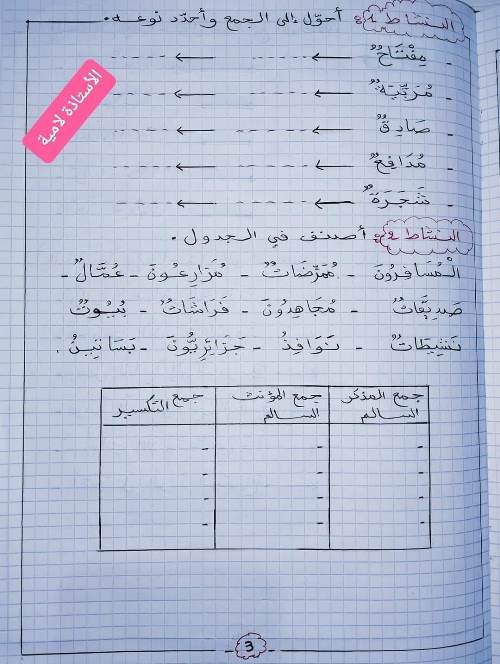 النشاط 1: أحوّل إلى الجمع وأحدّد نوعه.
- مِفْتَاحٌ ← ------ ← ------
- مُرَبِّيَةٌ ← ------ ← ------
- صَادِقٌ ← ------ ← ------
- مُدَافِعٌ ← ------ ← ------
- شَجَرَةٌ ← ------ ← ------
الأستاذة لامية
النشاط 2: أصنف في الجدول.
الْمُسَافِرُونَ - مُمَرِّضَاتٌ - مُزَارِعُونَ - عُمَّالٌ -
صَدِيقَاتٌ - مُجَاهِدُونَ - فَرَاشَاتٌ - بُيُوتٌ
نَشِيطَاتٌ - نَوَافِذُ - جَزَائِرِيُّونَ - بَسَاتِينُ.
جمع المذكر السالم | جمع المؤنث السالم | جمع التكسير
- | - | -
- | - | -
- | - | -
- | - | -
3